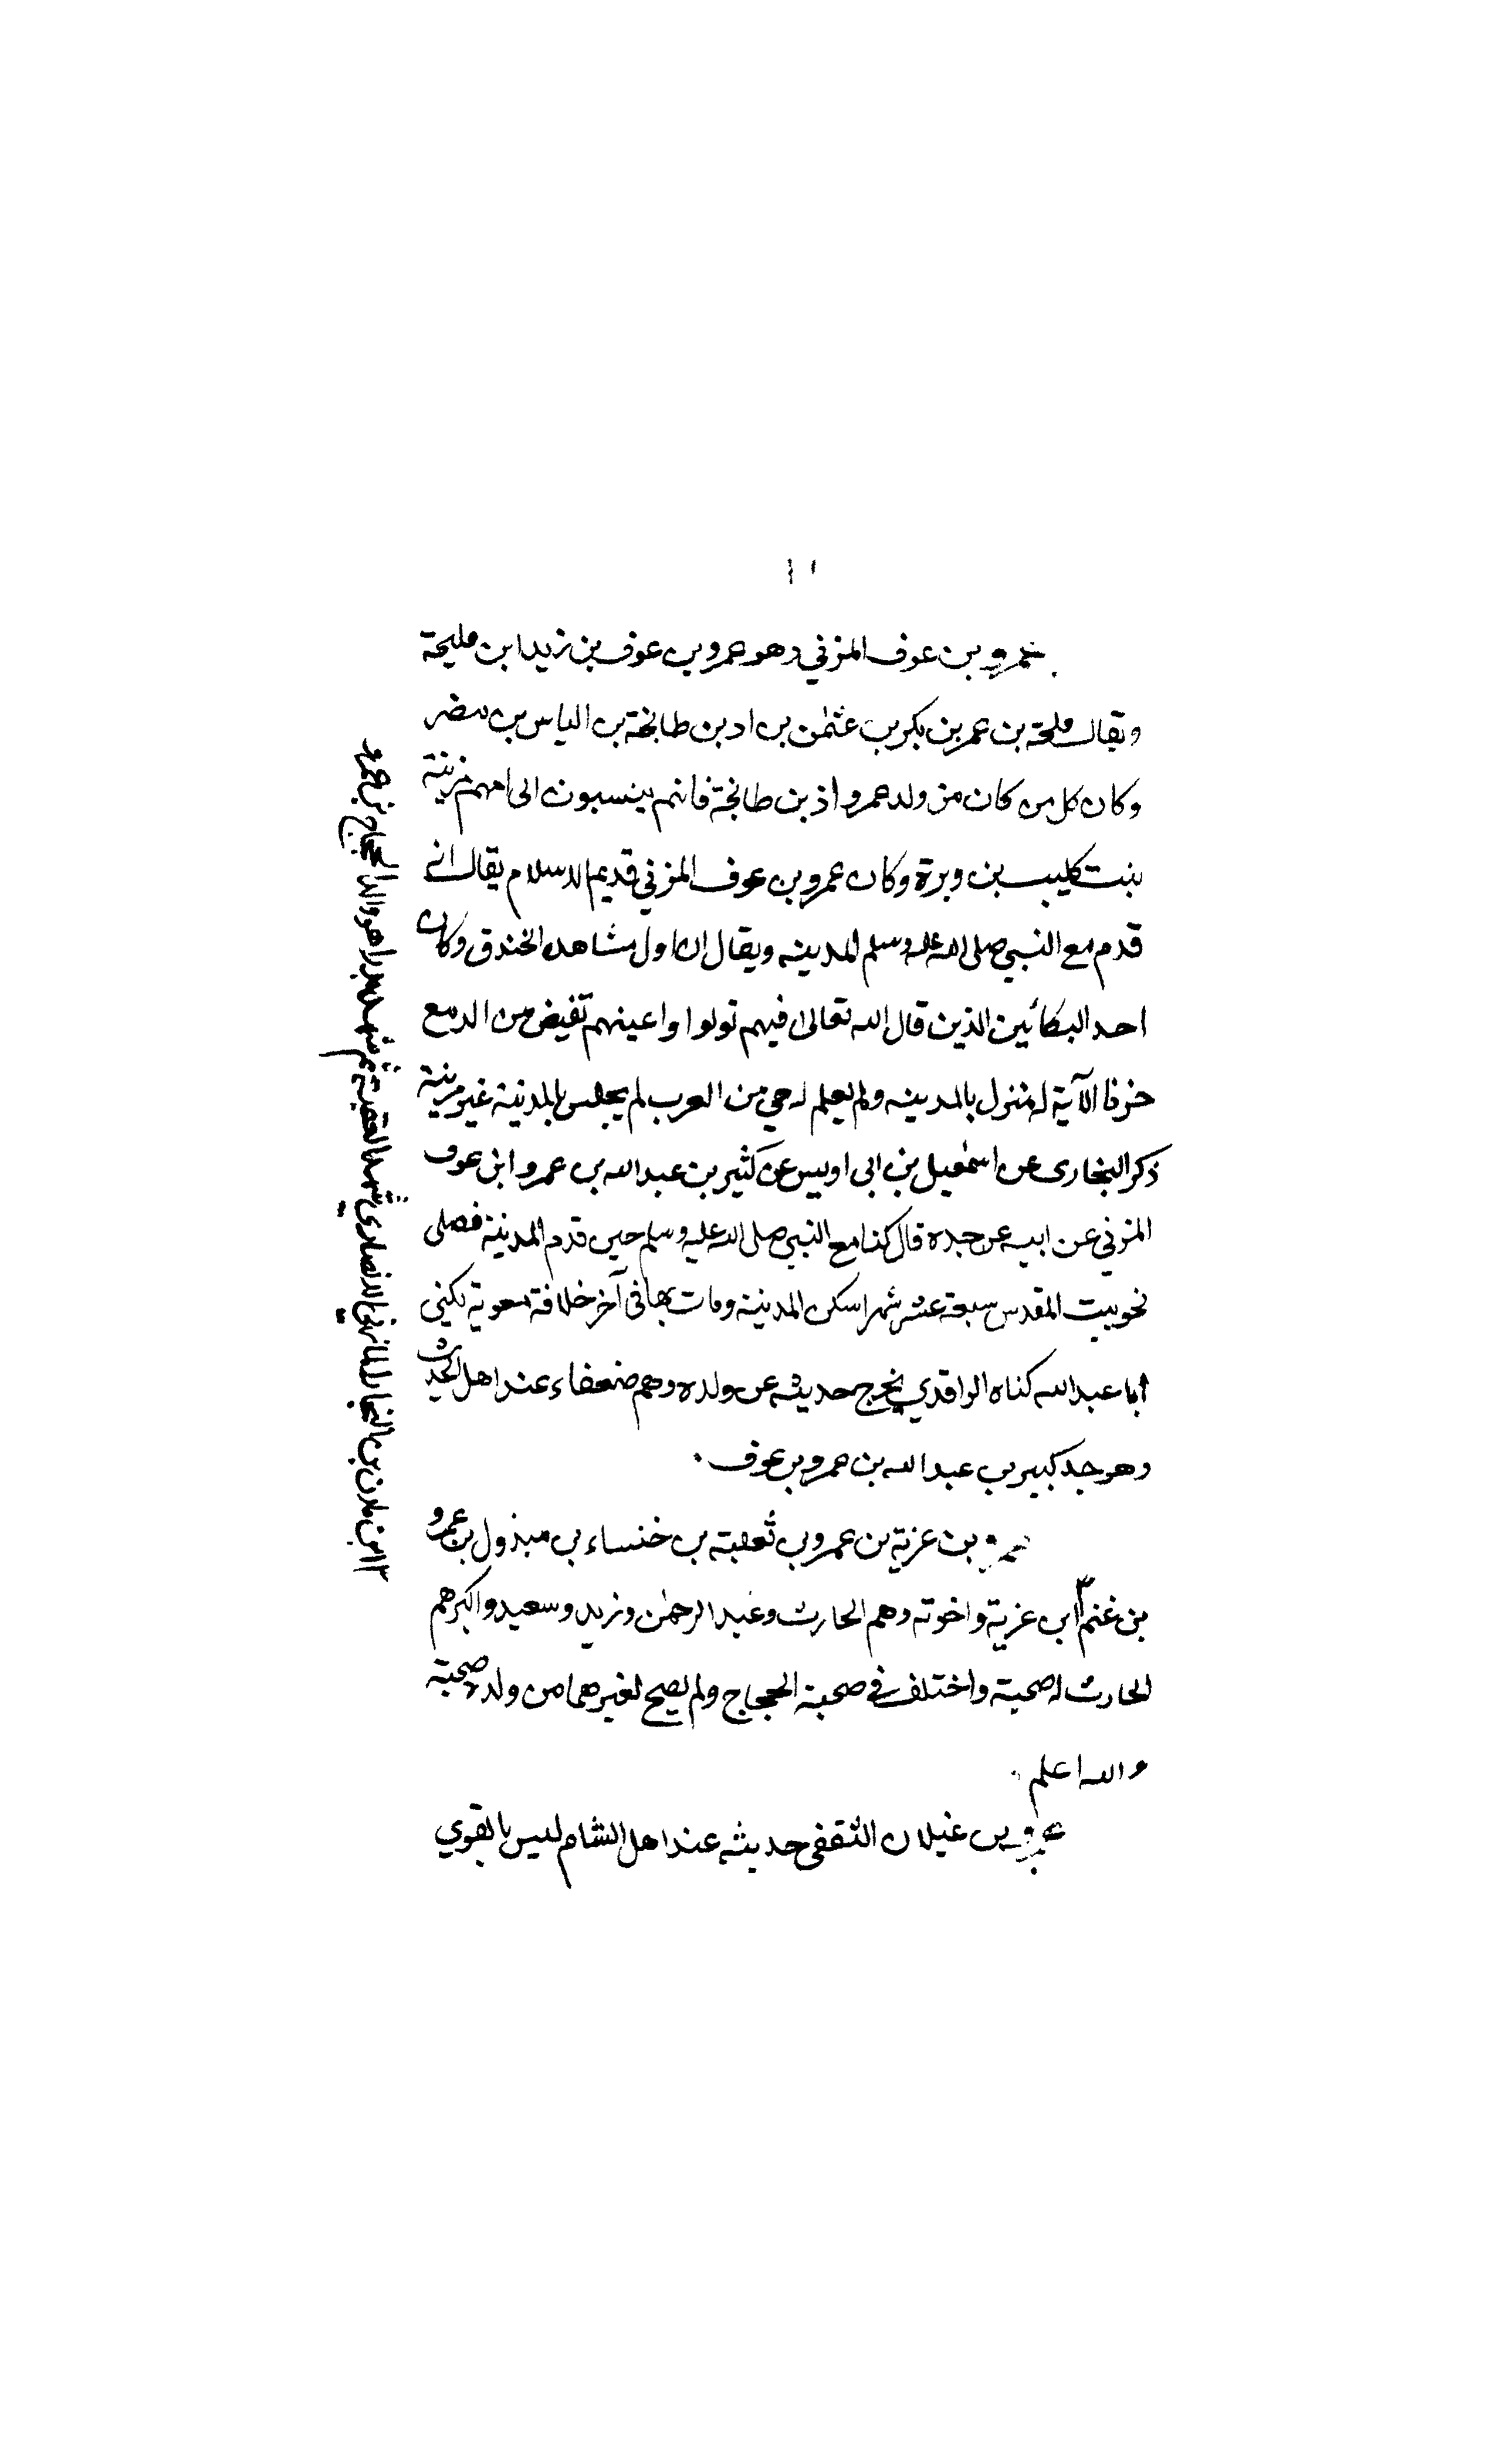 عمرو بن عوف المزني وهو عمرو بن عوف بن زيد ابن مليحة
ويقال ملحة بن عمر بن بكر بن عثمن بن اد بن طابخة بن الياس بن مضر
وكان كل من كان من ولد عمرو اذ بن طابخة فانهم ينسبون الى امهم مزينة
بنت كليب بن وبرة وكان عمرو بن عوف المزني قديم الاسلام يقال انه
قدم مع النبي صلى الله عليه وسلم المدينه ويقال ان اول مشاهده الخندق وكان
احد البكائين الذين قال الله تعالى فيهم تولوا واعينهم تفيض من الدمع
حزنا الآية له منزل بالمدينه ولم يعلم له حي من العرب لم يجلس بالمدينة غير مزينة
ذكر البخارى عن اسمعيل بن ابى اويس عن كثير بن عبد الله بن عمرو ابن عوف
المزني عن ابيه عن جده قال كنا مع النبي صلى الله عليه وسلم حين قدم المدينة فصلى
نحو بيت المقدس سبعة عشر شهرا سكن المدينة ومات بها فى آخر خلافة معوية يكنى
أبا عبد الله كناه الواقدي يخرج حديثه عن ولده وهم ضعفاء عند اهل الحديث
وهو جد كبير بن عبد الله بن عمرو بن عوف .
عمرو بن عزية بن عمرو بن ثعلبة بن خنساء بن مبذول بن عمرو
بن غنم ابن عزية واخوته وهم الحارث وعبد الرحمن وزيد وسعيد واكبرهم
الحارث له صحبة واختلف في صحبة الحجاج ولم يصح لغيرهما من ولده صحبة
والله اعلم .
عمرو بن غيلان الثقفى حديثه عند اهل الشام ليس بالقوي
١٢ ابن مازن بن النجار المازني الانصاري شهد العقبة ثم شهد بدرا هو والد الحجاج بن عمرو